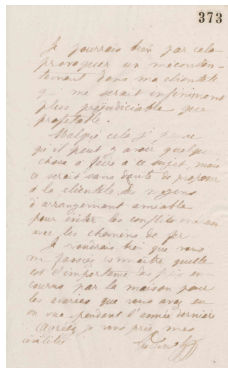 373
Je pourrais bien par cela
provoquer un mécontentement
dans ma clientèle
qui me serait infiniment
plus préjudiciable que
profitable.
Malgré cela je pense
qu'il peut y avoir quelque
chose à faire à ce sujet, mais
ce serait sans doute de proposer
à la clientèle de moyens
d'arrangement amiable
pour éviter les conflits
avec les chemins de fer.
Je voudrais bien que vous
me fassiez connaître quelle
est l'importance des frais
encourus par la maison pour
les avaries que vous avez eu
en vue pendant l'année dernière
Agréez, je vous prie, mes
civilités